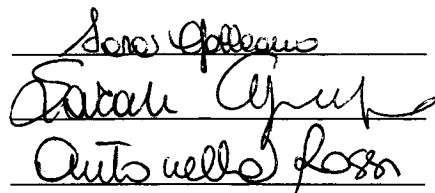 Sara Galleano
Sarah
Antonella Rossi